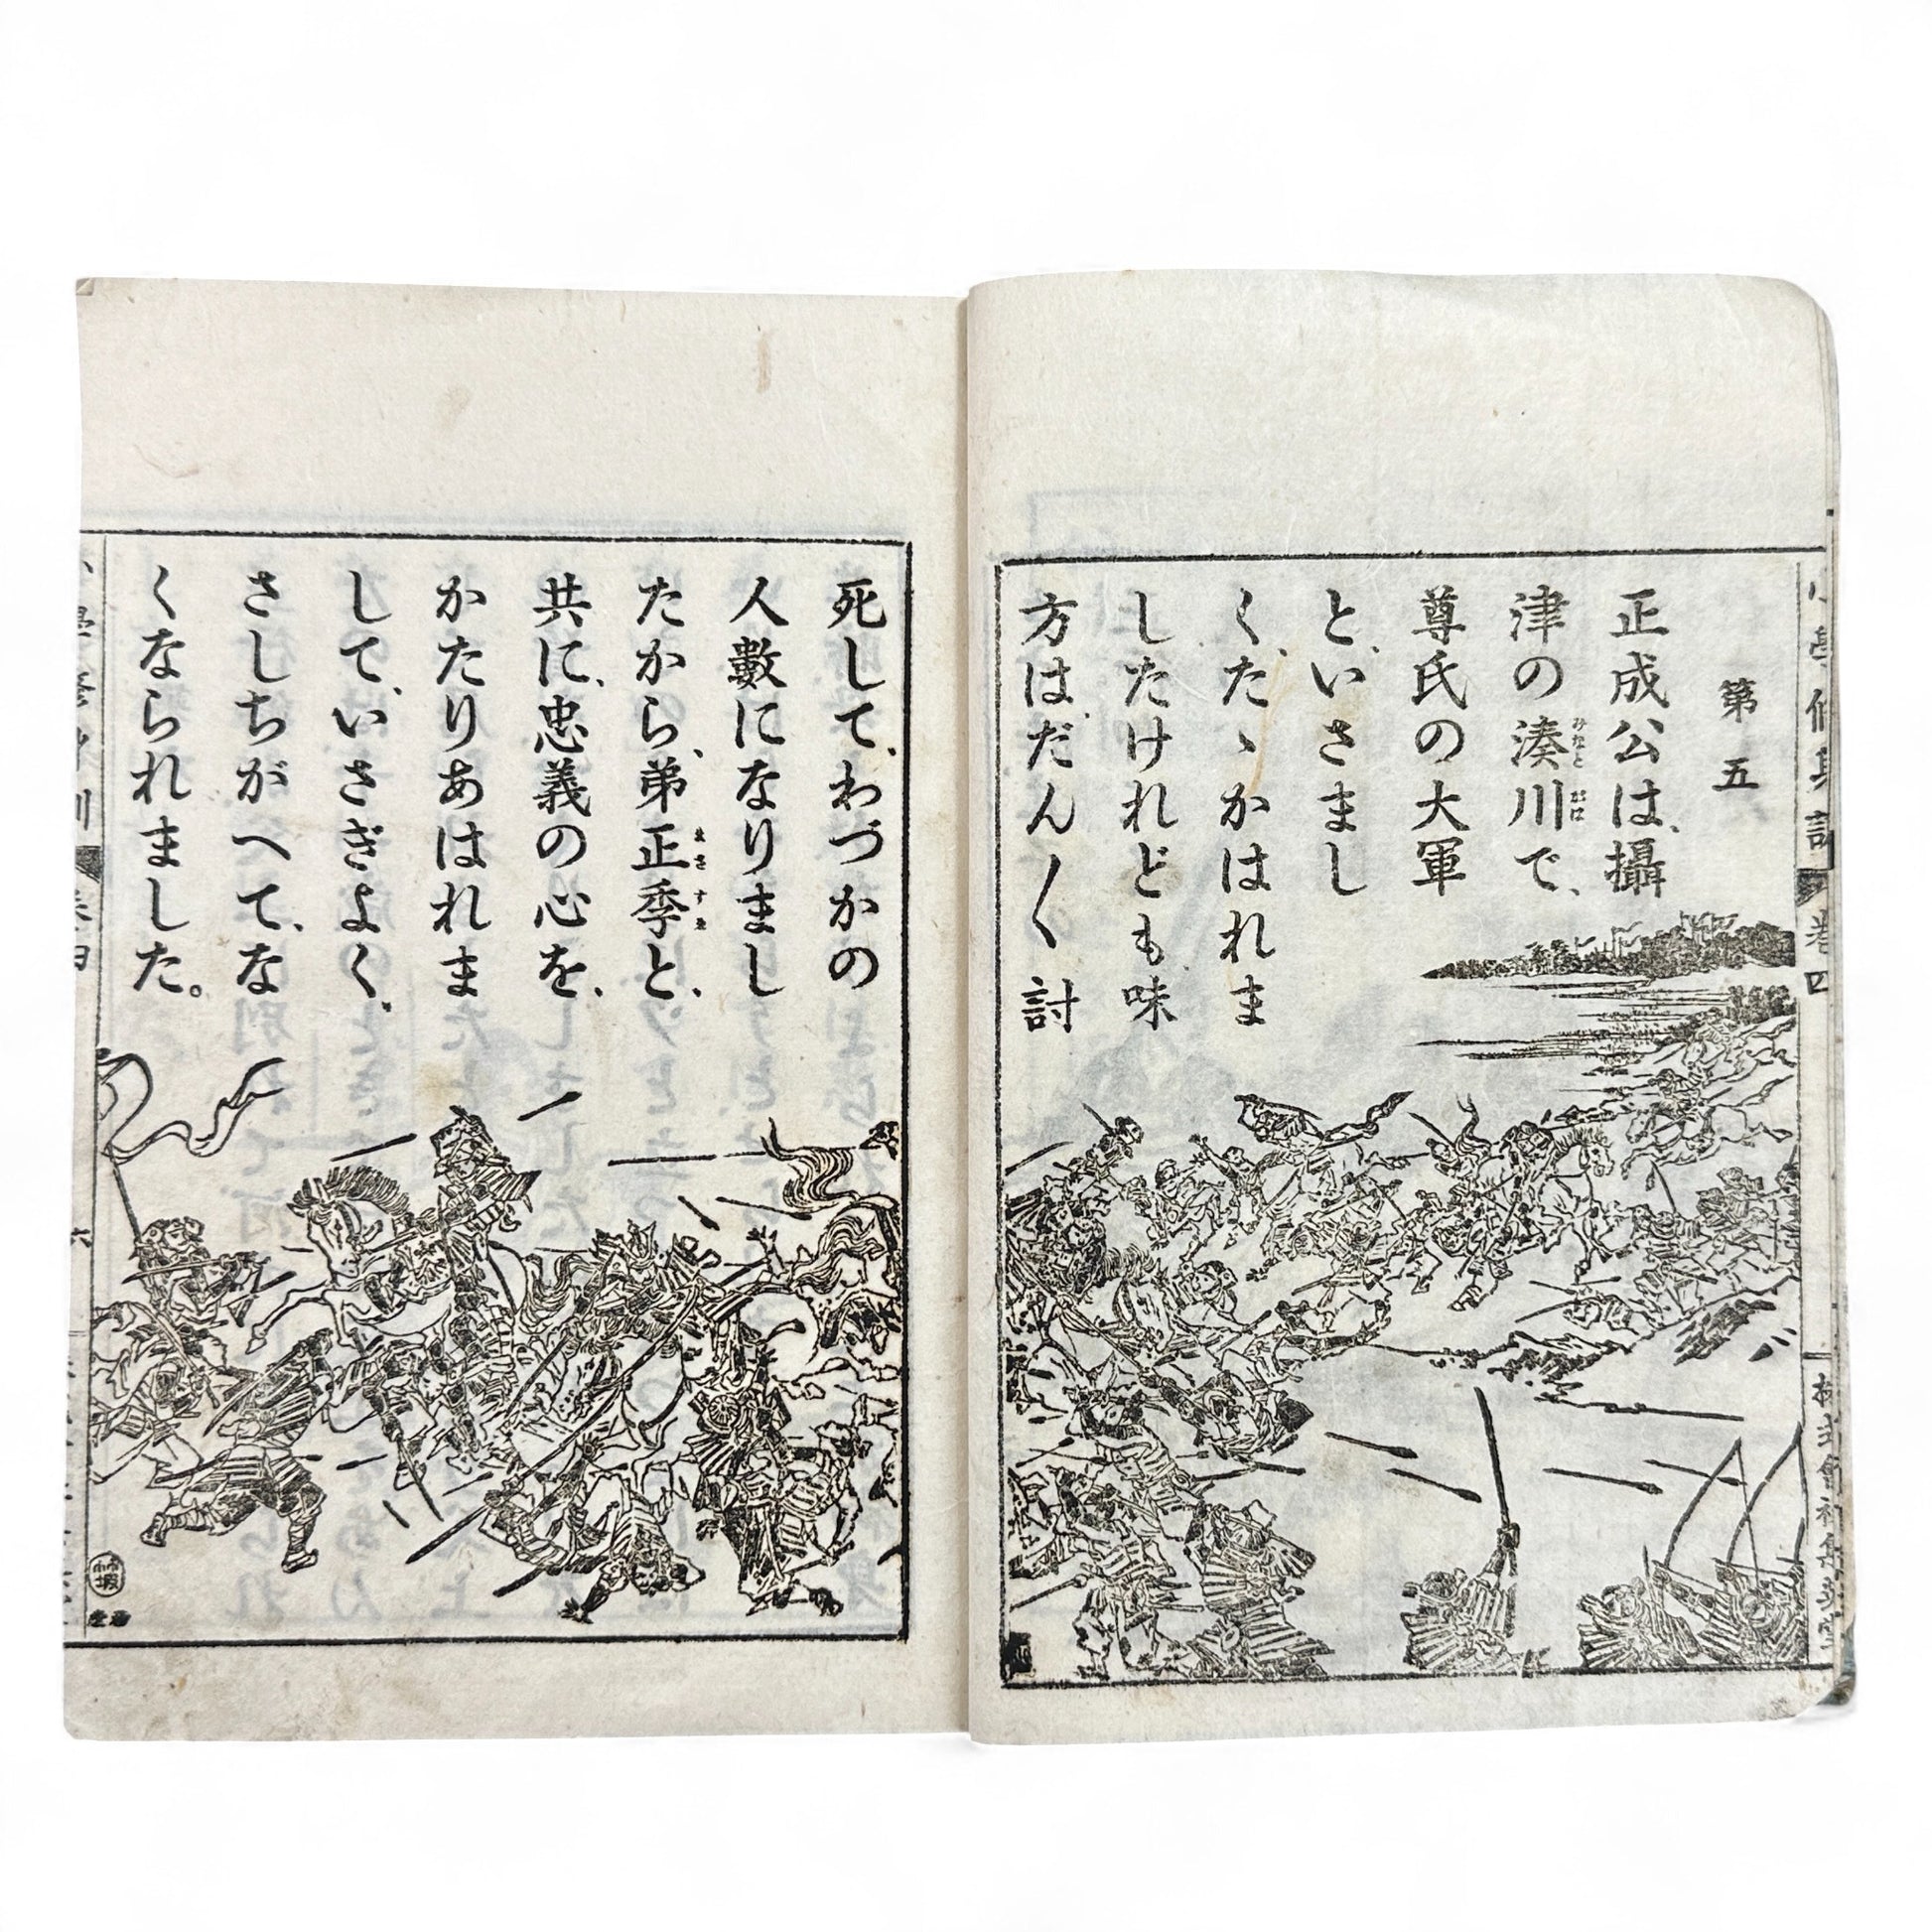 第五
正成公は、攝
津の湊川で、
尊氏の大軍
と、いさまし
く、たゝかはれま
したけれども、味
方はだん〱討
死して、わづかの
人數になりまし
たから、弟正季と、
共に、忠義の心を、
かたりあはれま
して、いさぎよく、
さしちがへて、な
くなられました。